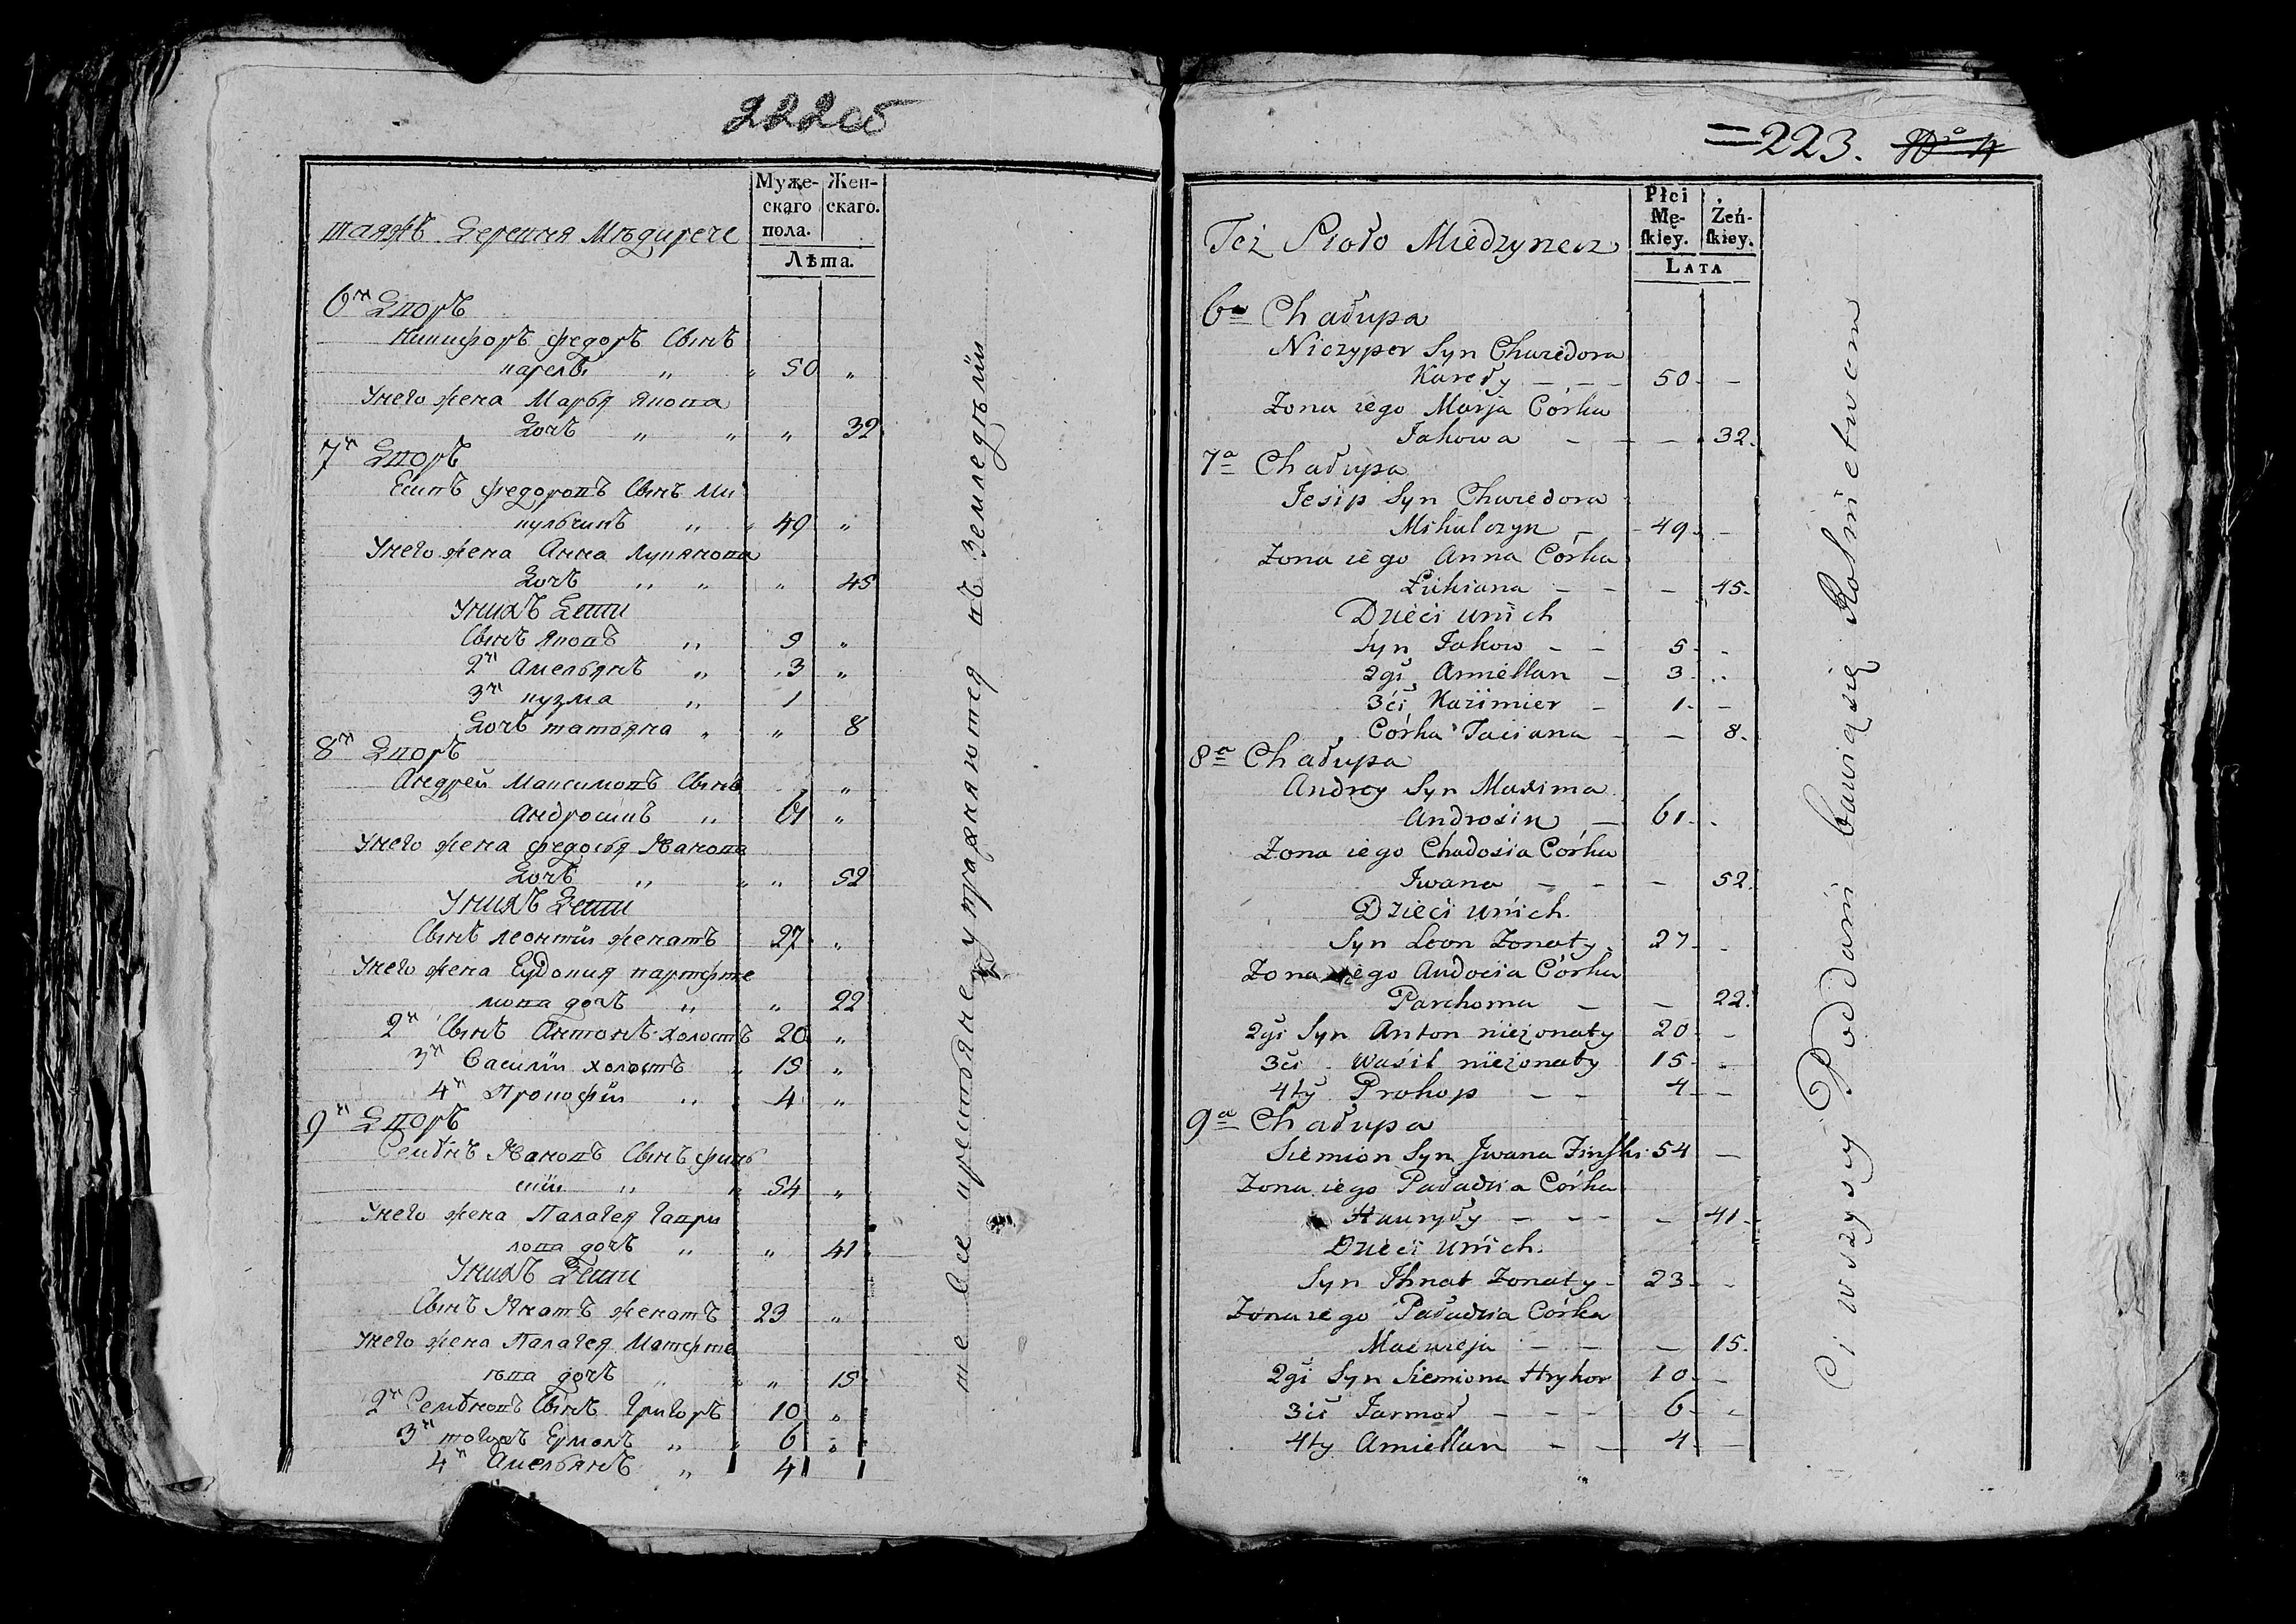 222об
Муже-
скаго
пола.
Жен-
скаго.
Лѣта.
таяжъ Деревня Мѣдирече
6й Дворъ
Никифоръ Федоръ Сынъ
карелы " " 50 "
Унего жена Марья якова
Дочъ " " " 32
7й Дворъ
Есипъ Федоровъ Сынъ Ми
кульчинъ " " 49 "
Унего жена Анна лукянова
Дочъ " " " 45
Унихъ Дети
Сынъ яковъ " 9 "
2й Амельянъ " 3 "
3й кузма " 1
Дочъ татьяна " " 8
8й Дворъ
Андрей Максимовъ Сынъ "
Андросинъ " 61 "
Унего жена федосья Иванова
Дочъ " " " 52
Унихъ Дети
Сынъ леонтій женатъ 27 "
Унего жена Еудокия
дочъ " " 22
2й Сынъ Антонъ холостъ 20 "
3й Василіи холостъ " 15 "
4й Прокофіи " 4 "
9й Дворъ
Семѣнъ Ивановъ Сынъ
" " 54 "
Унего жена Палагея Гаври
лова дочъ " " 41
Унихъ Дети
Сынъ Игнатъ женатъ 23 "
Унего жена Палагея Матфте
ѣва дочъ " " 15
2й Семѣновъ Сынъ Григоръ 10 "
3й тогожъ Ермолъ " " 6 "
4й Амельянъ " 4
те Все крестьяне упражняются въ Земледѣліи
=223. No 4
Płci
Mę-
skiey.
Żeń-
skiey.
LATA
Też Sioło Miedzyrecz
6a Chałupa
Niczyper Syn Chwiedora
Kareły – – – 50 – –
Zona iego Marja Córka
Jakowa – – – 32 –
7a Chałupa
Jesip Syn Chwiedora
Mikulczyn – – 49 – –
Zona iego Anna Córka
Łukiana – – – 45 –
Dzieci unich
Syn Jakow – – 5 – –
2gi Amiellan – 3 –
3ci Kazimier – 1 – –
Córka Taciana – – 8 –
8a Chałupa
Andrey Syn Maxima
Androsin – 61 – –
Zona iego Chadosia Córka
Jwana – – – 52
Dzieci unich.
Syn Leon Zonaty 27 – –
Zona iego Audocia Córka
Parchoma – – 22
2gi Syn Anton nieżonaty 20 – –
3ci Wasil nieżonaty 15 – –
4ty Prokop – – 4 – –
9a Chałupa
Siemion Syn Jwana Zinski 54 –
Zona iego Paładzia Córka
Hauryły – – – – 41 –
Dzieci unich.
Syn Jhnat Zonaty – 23 – –
Zona iego Paładzia Córka
Macwieja – – – 15.
2gi Syn Siemiona Hryhor 10 – –
3ci Jarmoł – – – 6 – –
4ty Amiellan – – 4 – –
Ci wszyscy Poddani bawią się Rolnictwem